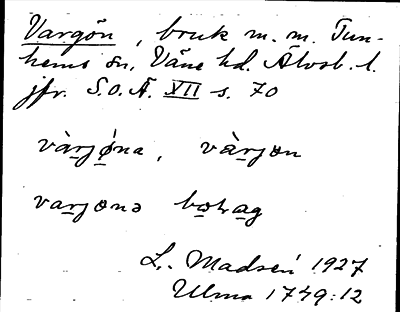 Vargön, bruk m. m. Tun-
hems sn, Väne hd. Älvsb. l.
jfr. S.O.Ä. XII s. 70
vàrjǿna, vàrjøn
varjønə bolag
L. Madsén 1927
Ulma 1749:12